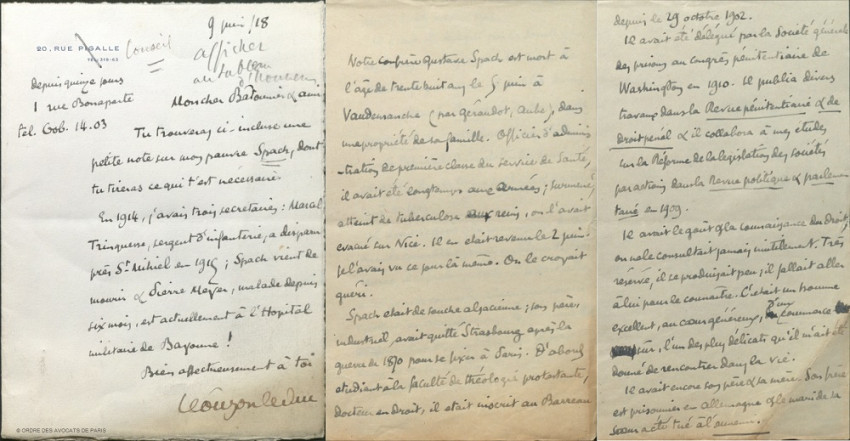 9 juin/18
20, RUE PIGALLE
Conseil
afficher
au tableau
d'honneur
depuis quinze jours
1 rue Bonaparte
tél. Gob. 14.03
Mon cher Bâtonnier & ami
Tu trouveras ci-incluse une
petite note sur mon pauvre Spach, dont
tu tireras ce qui t'est nécessaire.
En 1914, j'avais trois secrétaires : Marcel
Trinquesse, sergent d'infanterie, a disparu
près St Mihiel en 1915 ; Spach vient de
mourir & Pierre Meyer, malade depuis
six mois, est actuellement à l'Hopital
militaire de Bayonne !
Bien affectueusement à toi
Notre confrère Gustave Spach est mort à
l'âge de trente huit ans, le 5 juin à
(par Géraudot, Aube), dans
une propriété de sa famille. Officier d'adminis
tration de première classe du service de Santé,
il avait été longtemps aux Armées ; surmené,
atteint de tuberculose aux reins, on l'avait
évacué sur Nice. Il en était revenu le 2 juin.
Je l'avais vu ce jour là même. On le croyait
guéri.
Spach était de souche alsacienne ; son père,
industriel, avait quitté Strasbourg après la
guerre de 1870 pour se fixer à Paris. D'abord
étudiant à la faculté de théologie protestante,
Docteur en Droit, il était inscrit au Barreau
depuis le 29 octobre 1902.
Il avait été délégué par la Société générale
des prisons au congrès pénitentiaire de
Washington en 1910. Il publia divers
travaux dans la Revue pénitentiaire & de
droit pénal & il collabora à mes études
sur la Réforme de la législation des sociétés
parues dans la Revue politique & parlemen
taire en 1909.
Il avait le goût & la connaissance du Droit,
on ne le consultait jamais inutilement. Très
réservé, il se produisait peu ; il fallait aller
à lui pour le connaître. C'était un homme
excellent, au cœur généreux, d'un commerce
sûr, l'un des plus délicats qu'il m'ait été
donné de rencontrer dans la vie.
Il avait encore son père & sa mère. Son frère
est prisonnier en allemagne & le mari de sa
sœur a été tué à l'ennemi.
© ORDRE DES AVOCATS DE PARIS